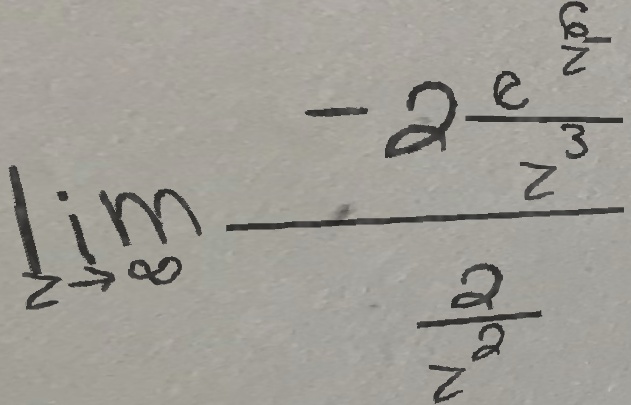 \lim_{z \to \infty} \frac{-2 \frac{e^{\frac{6}{z}}}{z^3}}{\frac{2}{z^2}}